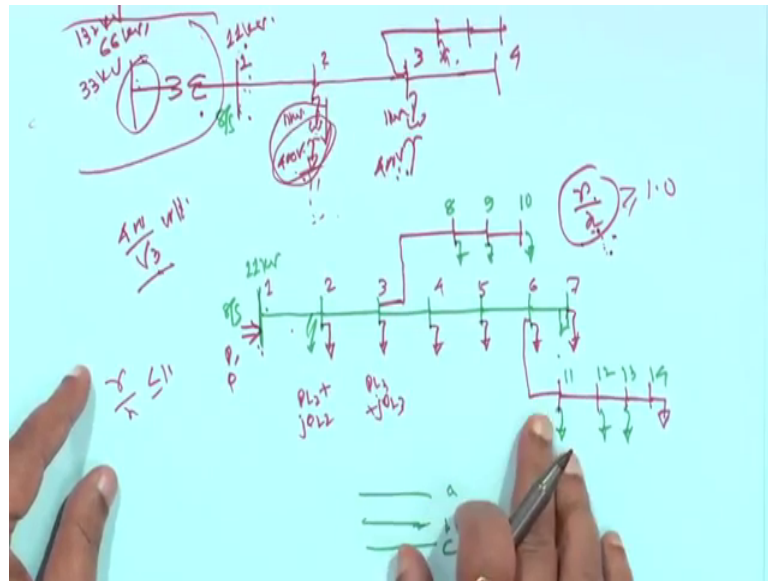 132 kV
66 kV,
33 kV
11 kV.
1
2
3
4
3ξ
S/S
11 kV
400V
11 kV
400V
400 volt
√3
r/x ≥ 1.0
8 9 10
11 kV
S/S 1 2 3 4 5 6 7
P,
Q
r/x ≤ 1
PL2+
jQL2
PL3
+jQL3
11 12 13 14
a
b
c